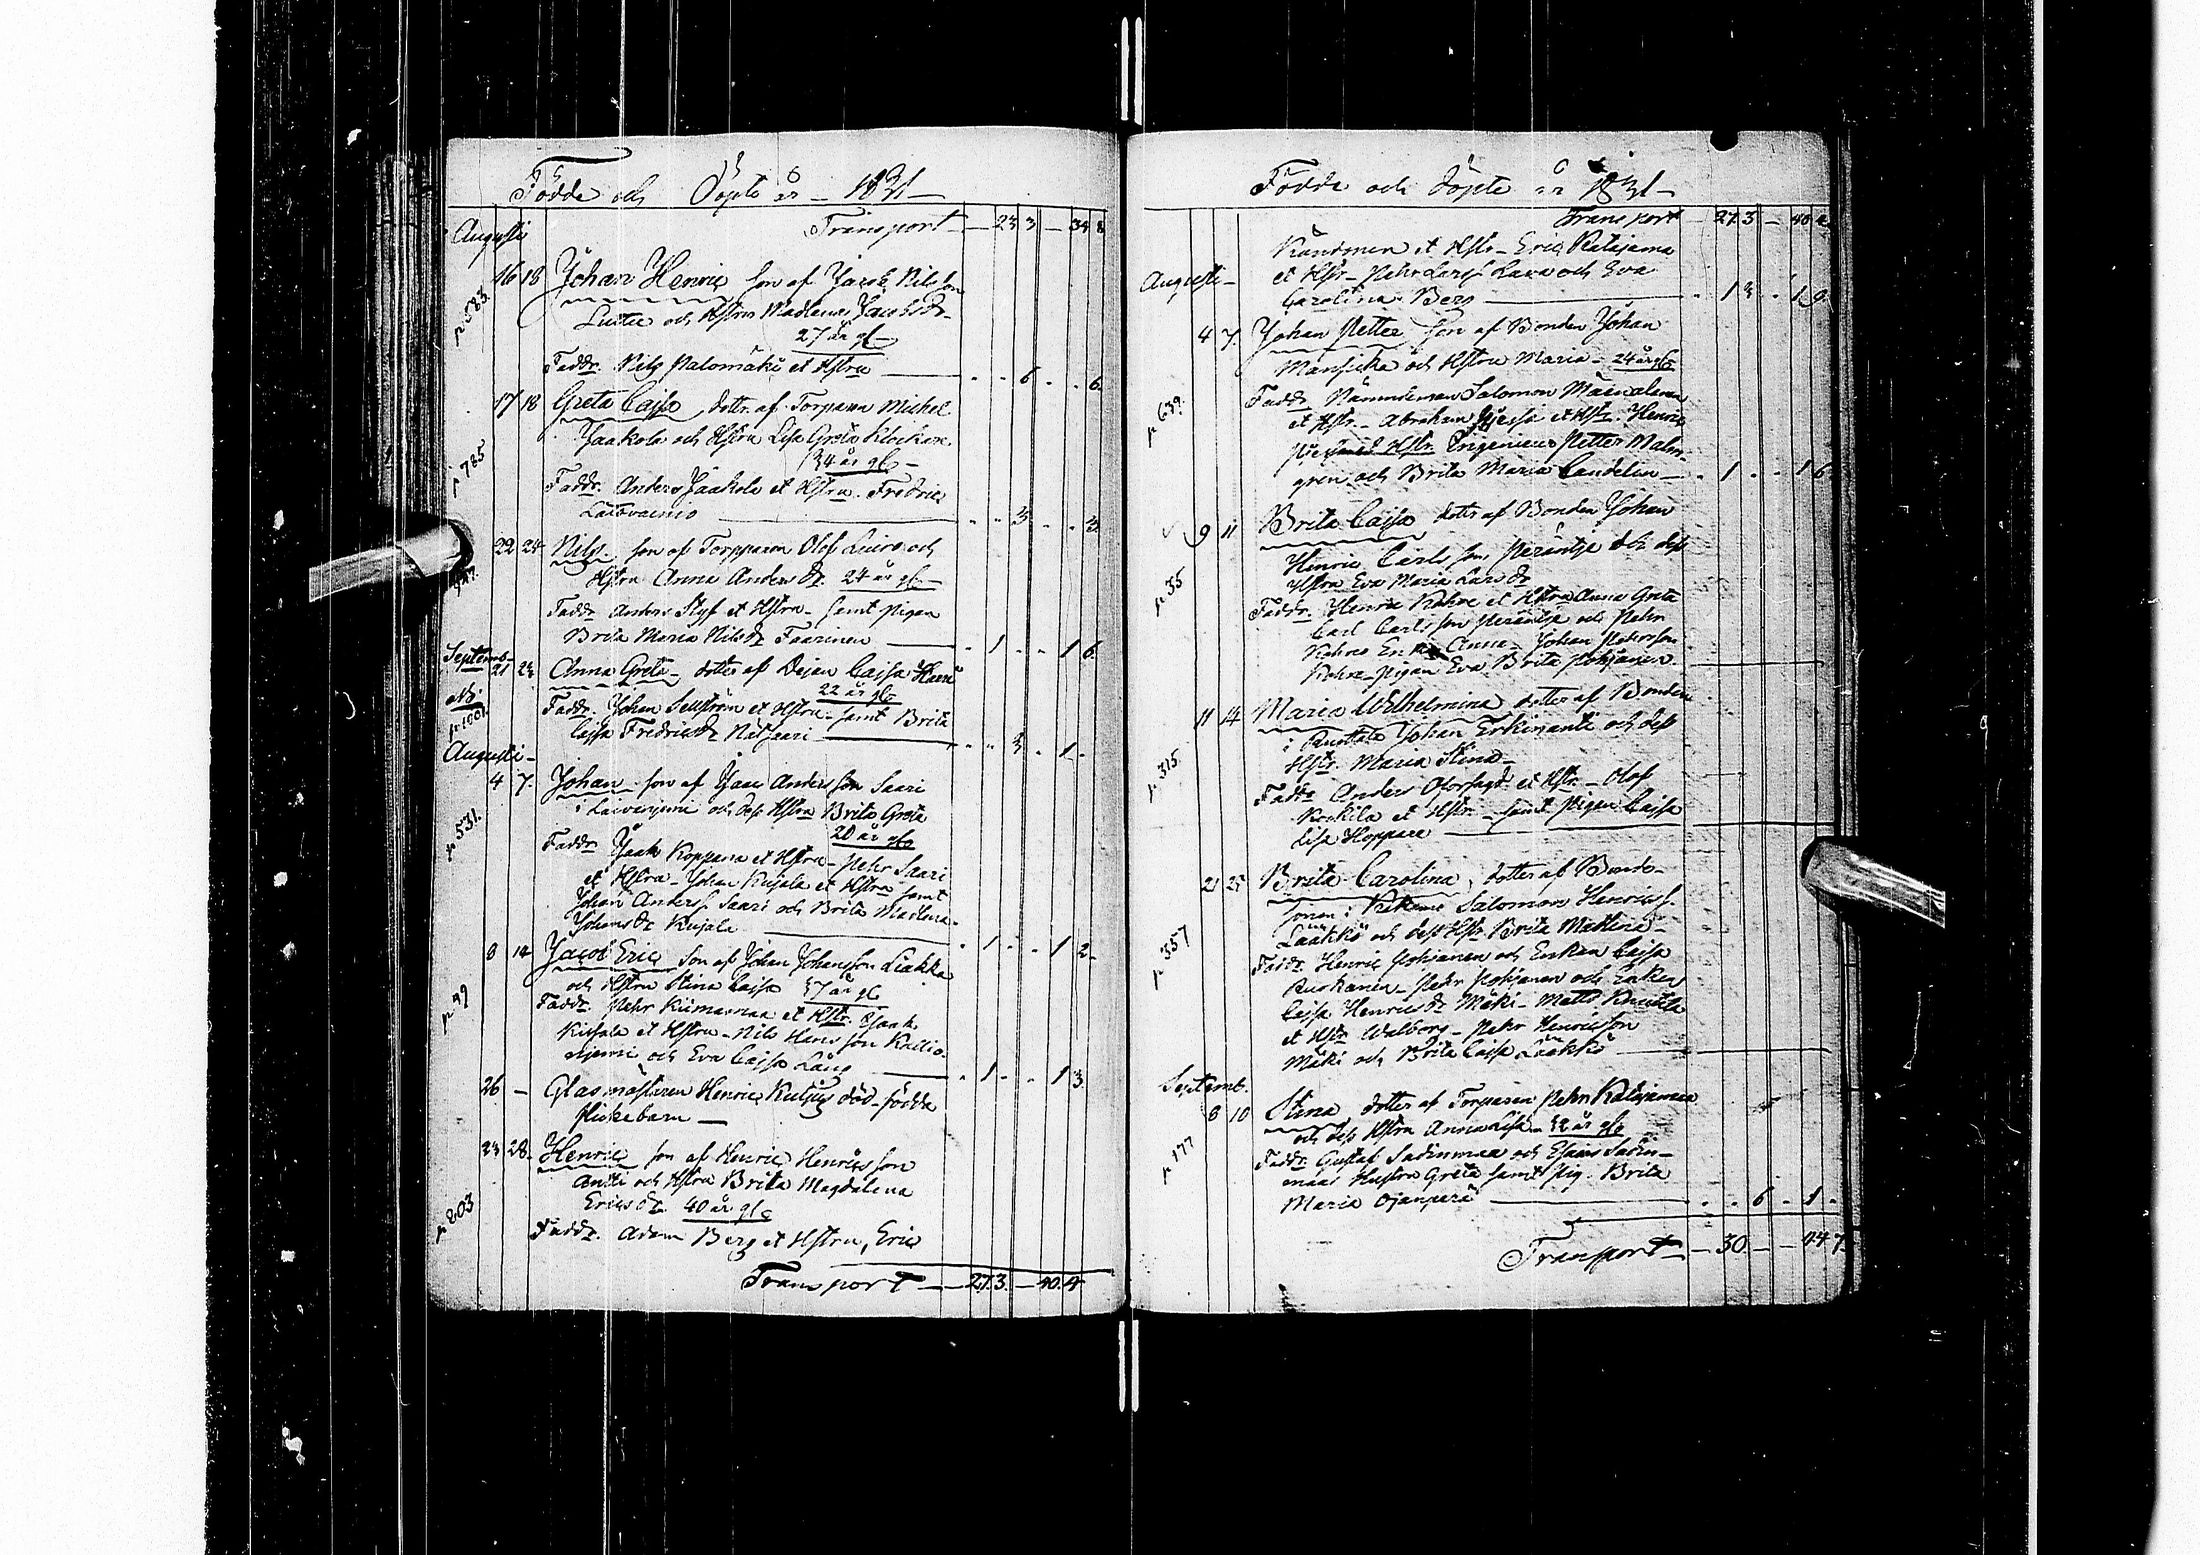 Födde och Döpte år 1831
Transport — 23 3 — 34 8
Augusti
16 18 Johan Henric son af Jacob Nilsson
p 583.
och Hstru Madlena Jacobsdr
27 år gl
Faddr. Nils Palomäki et Hstru — 6 . . 6
17 18 Greta Cajsa dottr. af Torparen Michel
Jaakola och Hstru Lisa Greta Klockare
p 785
34 år gl
Faddr. Anders Jaakola et Hstru. Fredric
3 . . 3
22 24 Nils. son af Torpparen Olof Luiro och
Hstru Anna Andersdr. 24 år gl
Faddr Anders Styf et Hstru samt pigan
Brita Maria Nilsdr Faarinen — 1 . . 1 6
Septemb.
21 23 Anna Greta dotter af Pigan Cajsa
22 år gl
p 1001
Faddr. Johan Sellström et Hstru samt Brita
Cajsa Fredricsdr — 3 . 1 .
Augusti
4 7. Johan son af Isaac Andersson Saari
i Laivaniemi och dess Hstru Brita Greta
p 531.
20 år gl
Faddr. Isaak Koppana et Hstru Pehr Saari
et Hstru Johan Kujala et Hstru samt
Johan Anderss. Saari och Brita Madlena
Johansdr Kujala — 1 . . 1 2
8 14 Jacob Eric son af Johan Johansson Liakka
och Hstru Stina Cajsa 37 år gl
p 49
Faddr. Pehr Kiimamaa et Hstr. Isaak
et Hstru Nils Hansson Kallio
niemi och Eva Cajsa Lång — 1 . . 1 3.
26 — Glasmästaren Henric död-födda
flickebarn —
23 28 Henric son af Henric Henricsson
Antti och Hstru Brita Magdalena
Ericsdr 40 år gl
p 203
Faddr. Adam Berg et Hstru, Eric
Transport — 27 3. — 40. 4
Födde och döpte år 1831
Transport — 27 3 — 40 4
et Hstr Eric Katajama
Augusti
et Hstr Pehr Larss. Lava och Eva
Carolina Berg — 1 3 . 1 9.
4 7. Johan Petter son af Bonden Johan
Mansicka och Hstru Maria 24 år gl
p 639.
Faddr Nämndeman Salomon Määnalanen
et Hstr. Abraham et Hstr. Henric
Hstr. Ingenieur Petter Malm-
gren och Brita Maria Candelin — 1 . . 1 6
9 11 Brita Cajsa dotter af Bonden Johan
Henric Carlsson Peräntje och dess
p 35
Hstru Eva Maria Larsdr
Faddr. Henric Rahve et Hstru Anna Greta
Carl Carlsson Peräntje och Pehr
Anna Johan Pehrsson
pigan Eva Brita Pohjanen
11 14 Maria Wilhelmina dotter af Bonden
i Johan Erkinantti och dess
Hstr. Maria Stina
p 315.
Faddr Anders et Hstr Olof
Korkila et Hstr samt pigan Cajsa
Lisa Hoppare
21 25 Brita Carolina, dotter af Bonde-
sonen i Salomon Henricss.
Lääkkö och dess Hstr Brita Madlena
p 357
Faddr. Henric Pohjanen och Enkan Cajsa
Ruokanen Pehr Pohjanen och Enkan
Cajsa Henricsdr Mäki Matts Knutila
et Hstr Walborg Pehr Henricsson
Mäki och Brita Cajsa Lääkkö
Septemb.
8 10 Stina dotter af Torparen Pehr Katajamaa
och dess Hstru Anna Lisa 32 år gl
p 177
Faddr. Gustaf Sadinmaa och Esaias Sadin-
maas Hustru Greta samt pig. Brita
Maria Ojanperä — 6 . 1 .
Transport — 30 — 44 7